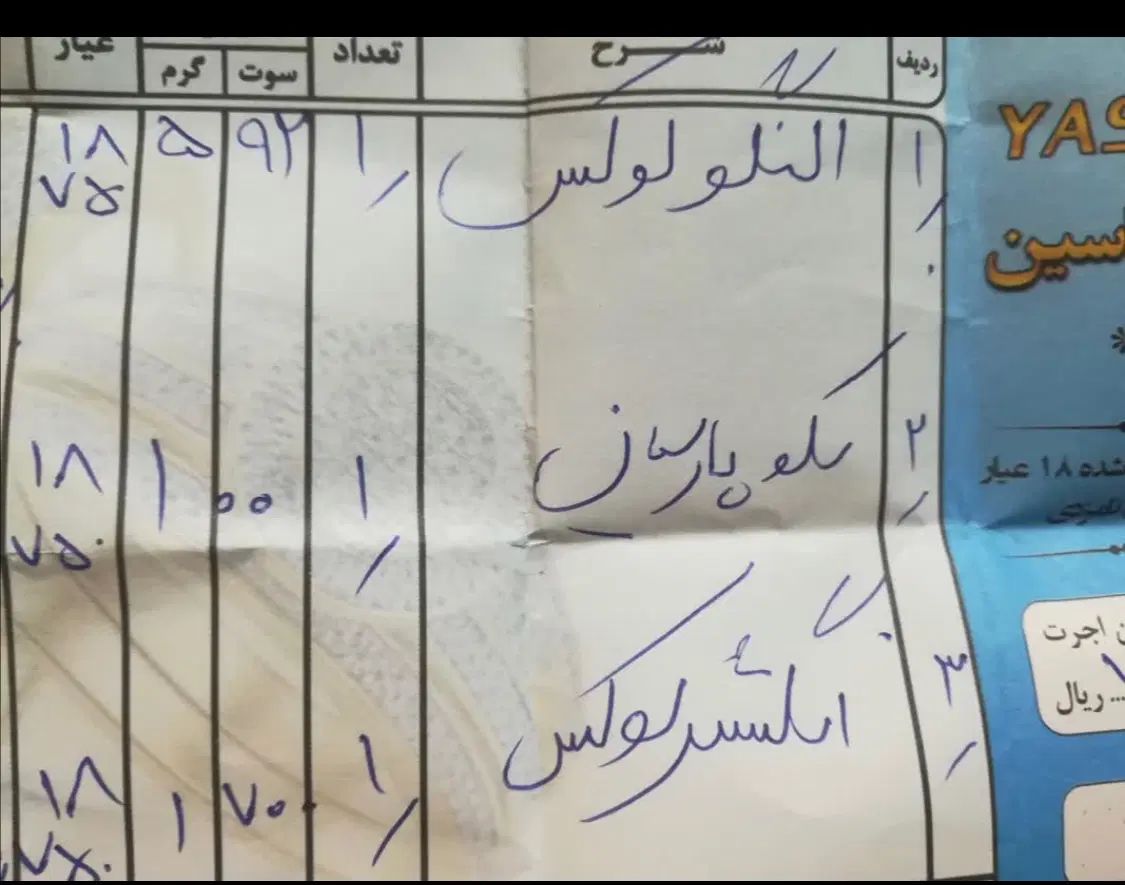 ردیف شرح تعداد سوت گرم عیار
۱ النگو لوکس ۱ ۹۲ ۵ ۱۸
۷۵
۲ پارسیان ۱ ۰۰ ۱ ۱۸
۷۵۰
۳ انگشتر لوکس ۱ ۷۰ ۱ ۱۸
۷۵۰
YAS
اسین
شده ۱۸ عیار
اجرت
ریال